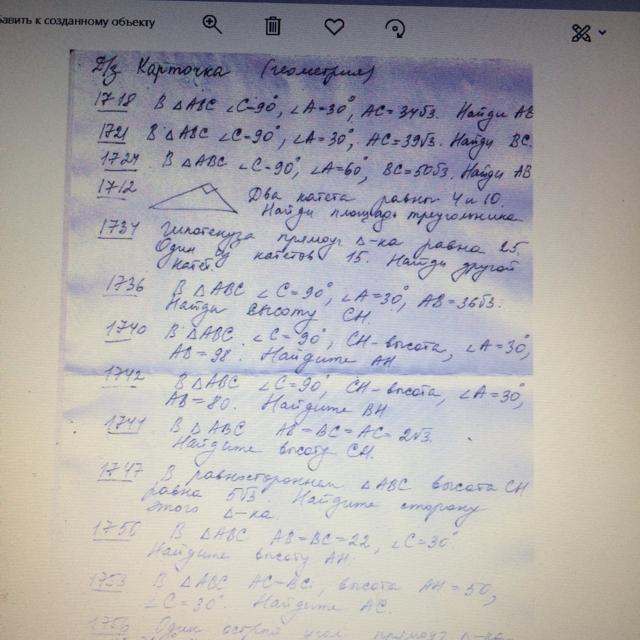 бавить к созданному объекту
Д/з Карточка (геометрия)
1718 В △ABC ∠C=90°, ∠A=30°, AC=34√3. Найди AB
1721 В △ABC ∠C=90°, ∠A=30°, AC=39√3. Найди BC.
1724 В △ABC ∠C=90°, ∠A=60°, BC=50√3. Найди AB
1712 Два катета равны 4 и 10.
Найди площадь треугольника
1734 Гипотенуза прямоуг △-ка равна 25.
Один из катетов 15. Найди другой
катет.
1736 В △ABC ∠C=90°, ∠A=30°, AB=36√3.
Найди высоту CH.
1740 В △ABC ∠C=90°, CH-высота, ∠A=30°,
AB=98. Найдите AH.
1742 В △ABC ∠C=90°, CH-высота, ∠A=30°,
AB=80. Найдите BH
1744 В △ABC AB=BC=AC=2√3.
Найдите высоту CH.
1747 В равностороннем △ABC высота CH
равна 5√3. Найдите сторону
этого △-ка.
1750 В △ABC AB=BC=22, ∠C=30°.
Найдите высоту AH.
1753 В △ABC AC=BC, высота AH=50,
∠C=30°. Найдите AC.
1756 Один острый угол прямоуг △-ка